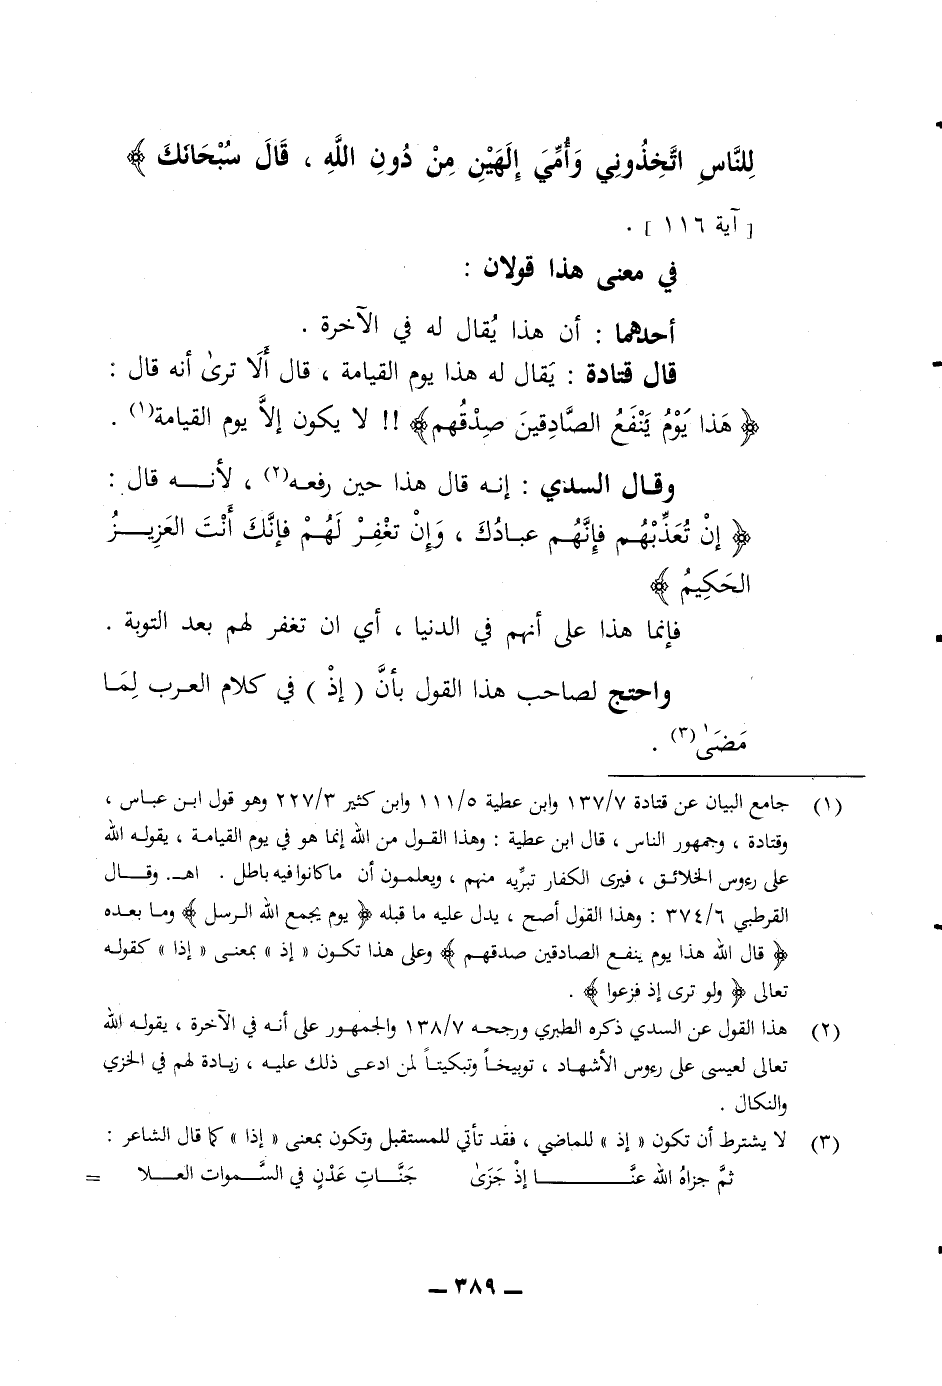 لِلنَّاسِ اتَّخِذُونِي وَأُمِّيَ إِلَهَيْنِ مِنْ دُونِ اللَّهِ ، قَالَ سُبْحَانَكَ ﴾
[ آية ١١٦ ] .
في معنى هذا قولان :
أحدهما : أن هذا يُقال له في الآخرة .
قال قتادة : يَقال له هذا يوم القيامة ، قال أَلَا ترىٰ أنه قال :
﴿ هَذا يَوْمُ يَنْفَعُ الصَّادِقينَ صِدْقُهم﴾ !! لا يكون إلاَّ يوم القيامة(١) .
وقـال السدي : إنـه قال هذا حين رفعـه(٢) ، لأنــــه قال :
﴿ إنْ تُعَذِّبْهُـم فإِنَّهُـم عبـادُكَ ، وَإِنْ تغْفِـرْ لَهُـمْ فإنَّكَ أَنْتَ العَزِيــزُ
الحَكِيمُ ﴾
فإنما هذا على أنهم في الدنيا ، أي ان تغفر لهم بعد التوبة .
واحتج لصاحب هذا القول بأنَّ ( إذْ ) في كلام العرب لِمَـا
مَضَىٰ(٣) .
(١) جامع البيان عن قتادة ١٣٧/٧ وابن عطية ١١١/٥ وابن كثير ٢٢٧/٣ وهو قول ابـن عبـاس ،
وقتادة ، وجمهور الناس ، قال ابن عطية : وهذا القـول من الله إنما هو في يوم القيامـة ، يقولـه الله
على رءوس الخلائـق ، فيرى الكفار تبرِّيه منهـم ، ويعلمـون أن ماكانوا فيه باطل . اهـ. وقــال
القرطبي ٣٧٤/٦ : وهذا القول أصح ، يدل عليه ما قبله ﴿ يوم يجمع الله الرسل ﴾ ومـا بعـده
﴿ قال الله هذا يوم ينفـع الصادقين صدقهـم ﴾ وعلى هذا تكـون « إذ » بمعنـى « إذا » كقولـه
تعالى ﴿ ولو ترى إذ فزعوا ﴾ .
(٢) هذا القول عن السدي ذكره الطبري ورجحه ١٣٨/٧ والجمهـور على أنه في الآخرة ، يقولـه الله
تعالى لعيسى على رءوس الأشهـاد ، توبيخـاً وتبكيتـاً لمن ادعـى ذلك عليـه ، زيـادة لهم في الخزي
والنكال .
(٣) لا يشترط أن تكون « إذ » للماضي ، فقد تأتي للمستقبل وتكون بمعنى « إذا » كما قال الشاعر :
ثمَّ جزاهُ الله عنَّــــــــا إذْ جَزَىٰ جَنَّـاتِ عَدْنٍ في السَّمـوات العـلا =
ــ ٣٨٩ ــ